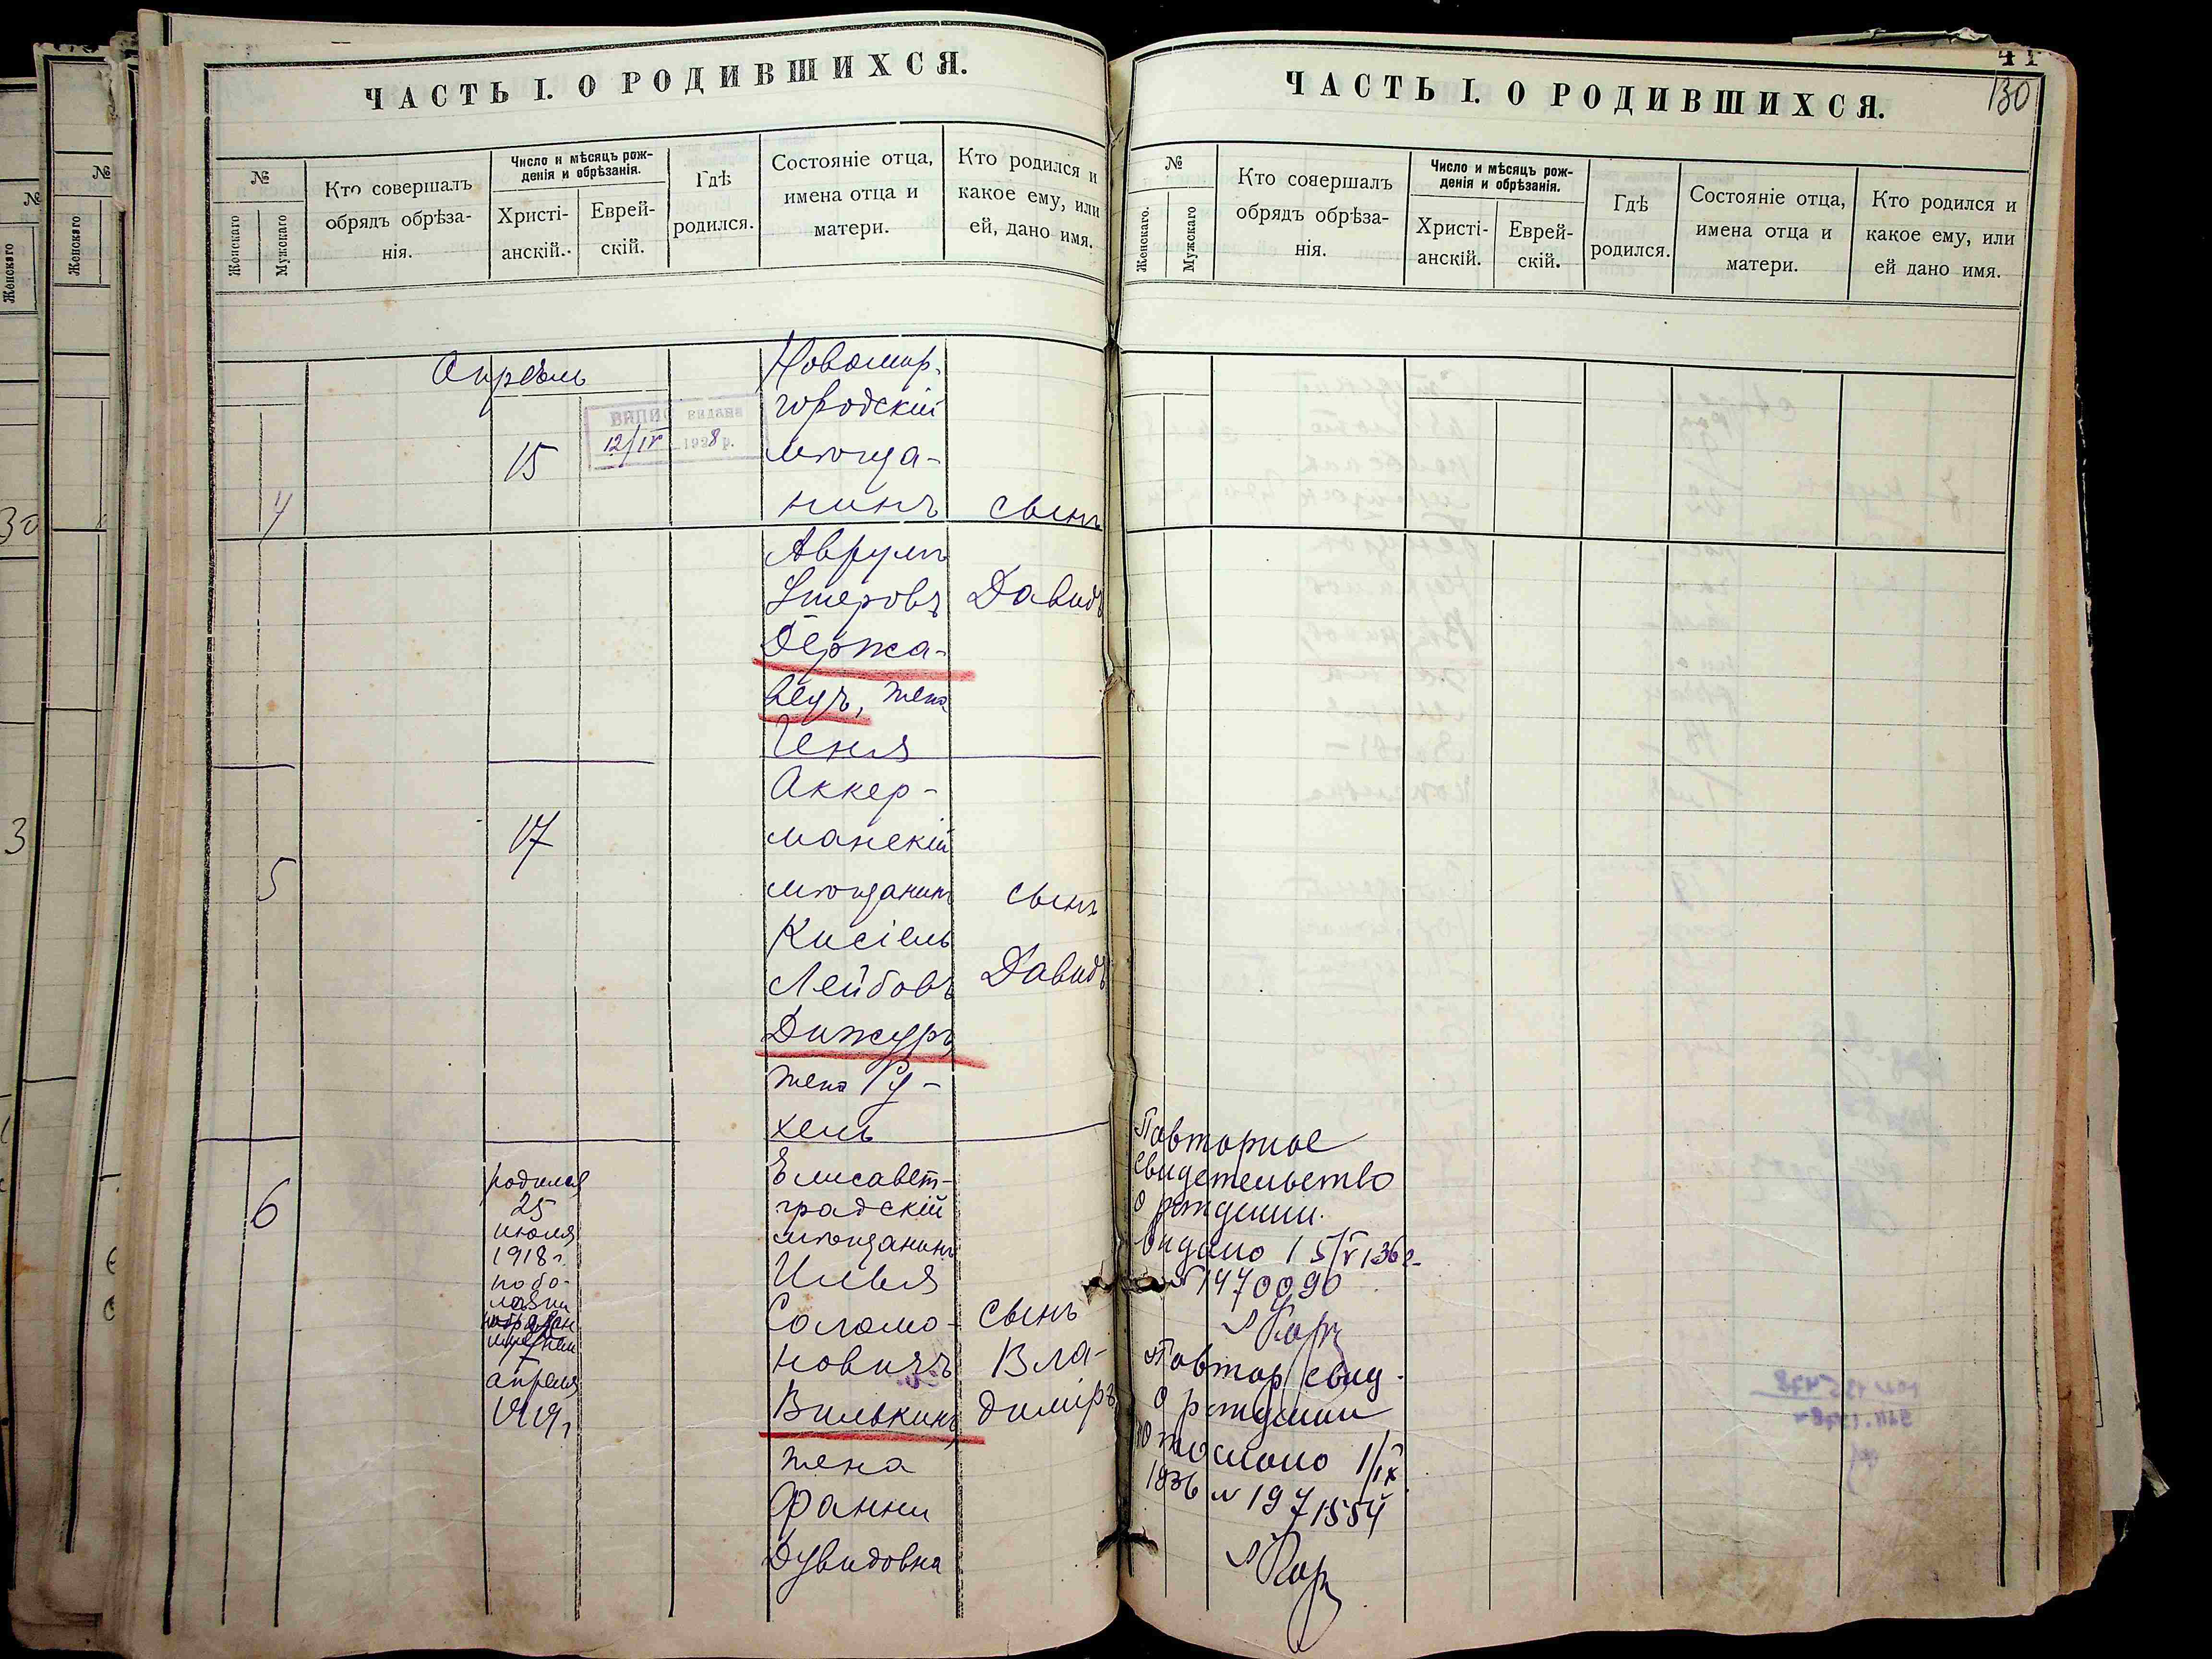 ЧАСТЬ I. О РОДИВШИХСЯ.
№
Женскаго
Мужскаго
Кто совершалъ
обрядъ обрѣза-
нія.
Число и мѣсяцъ рож-
денія и обрѣзанія.
Христі-
анскій.
Еврей-
скій.
Гдѣ
родился.
Состояніе отца,
имена отца и
матери.
Кто родился и
какое ему, или
ей, дано имя.
Апрѣль
4
15
ВИПИС видана
12/IV 1928 р.
Новомир-
городскій
мѣща-
нинъ
Аврумъ
Ушеровъ
Держа-
вецъ, жена
Геня
сынъ
Давидъ
5
17
Аккер-
манскій
мѣщанинъ
Кисіель
Лейбовъ
Дижуръ
жена Ру-
хель
сынъ
Давидъ
6
родился
25
июля
1918 г.
по бо-
лѣзни
апреля
1919 г
Елисавет-
градскій
мѣщанинъ
Илья
Соломо-
новичъ
Вилькинъ
жена
Фанни
Дувидовна
сынъ
Вла-
диміръ
ЧАСТЬ I. О РОДИВШИХСЯ.
41
130
№
Женскаго.
Мужскаго
Кто совершалъ
обрядъ обрѣза-
нія.
Число и мѣсяцъ рож-
денія и обрѣзанія.
Христі-
анскій.
Еврей-
скій.
Гдѣ
родился.
Состояніе отца,
имена отца и
матери.
Кто родился и
какое ему, или
ей дано имя.
Повторное
свидетельство
о рождении.
видано 15/V 136 г.
№ 1470090
Повтор свид.
о рождении
1/IX
1936 № 1971554